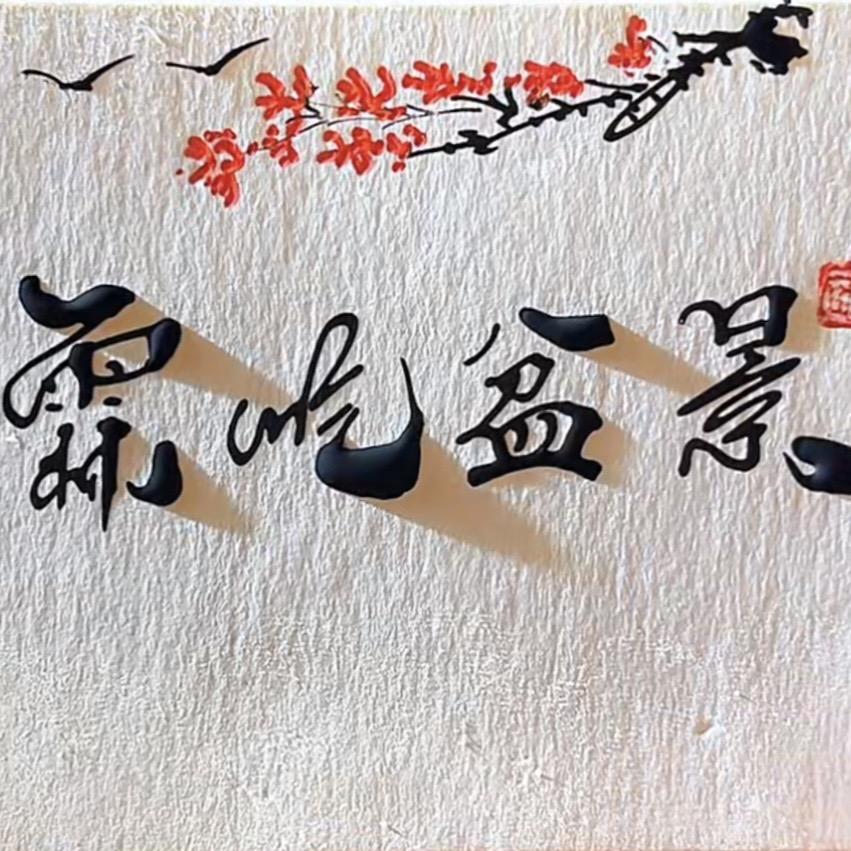 霖屹盆景